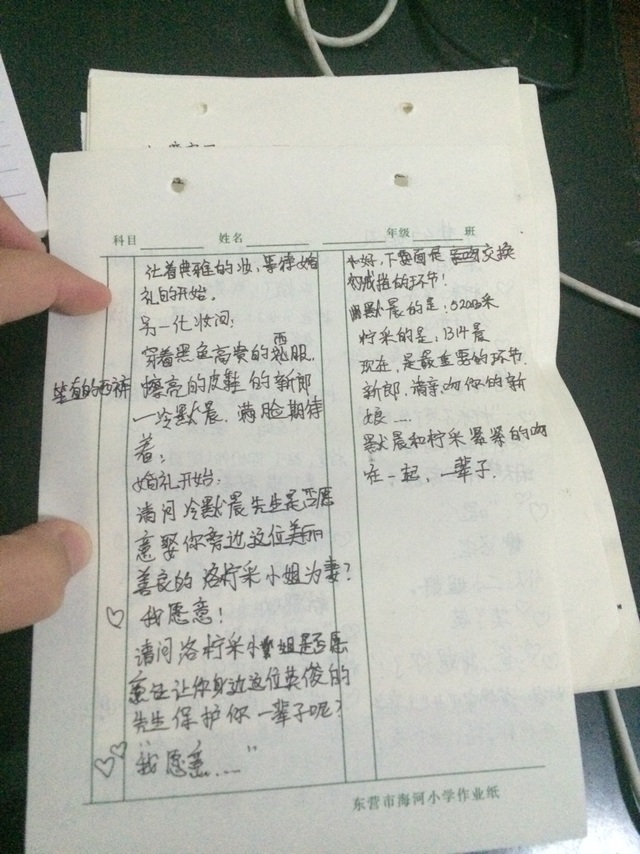 科目 姓名 年级 班
化着典雅的妆，等待婚
礼的开始。
另一化妆间：
穿着黑色高贵的西服，
笔直的西裤
擦亮的皮鞋的新郎
—冷默晨，满脸期待
着；
婚礼开始：
请问冷默晨先生是否愿
意娶你旁边这位美丽
善良的洛柠采小姐为妻？
我愿意！
请问洛柠采小姐是否愿
意让你身边这位英俊的
先生保护你一辈子呢？
我愿意....."
好，下面是交换
戒指的环节！
默晨的是：5200采
柠采的是：1314晨
现在，是最重要的环节.
新郎，请亲吻你的新
娘.....
默晨和柠采紧紧的吻
在一起，一辈子.
东营市海河小学作业纸